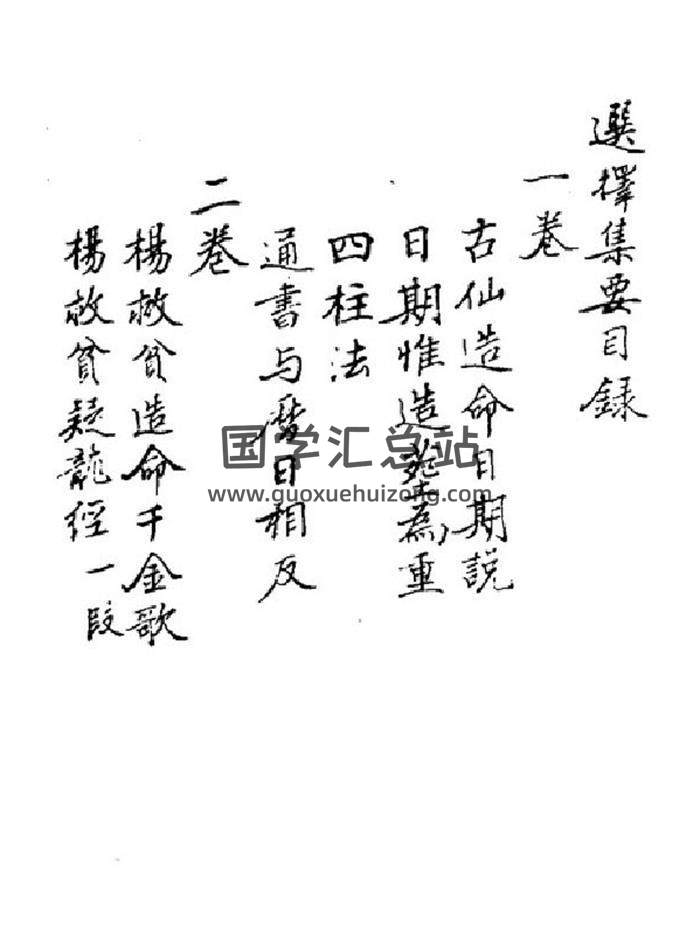 選擇集要目録
一卷
古仙造命日期説
日期惟造塟為重
四柱法
通書与曆日相反
二卷
楊救貧造命千金歌
楊救貧疑龍經一段
国学汇总站
www.guoxuehuizong.com